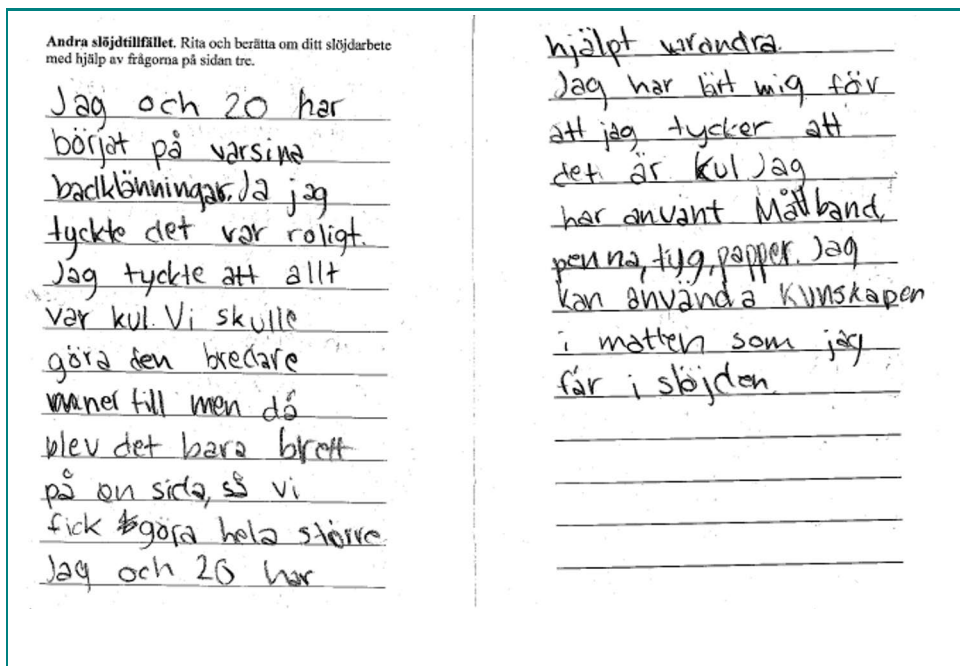 Andra slöjdtillfället. Rita och berätta om ditt slöjdarbete
med hjälp av frågorna på sidan tre.
Jag och 20 har
börjat på varsina
badklänningar. Ja jag
tyckte det var roligt.
Jag tyckte att allt
var kul. Vi skulle
göra den bredare
till men då
blev det bara brett
på en sida, så vi
fick göra hela större
Jag och 20 har
hjälpt varandra.
Jag har lärt mig för
att jag tycker att
det är kul Jag
har använt Måttband,
penna, tyg, papper. Jag
kan använda kunskapen
i matten som jag
får i slöjden.